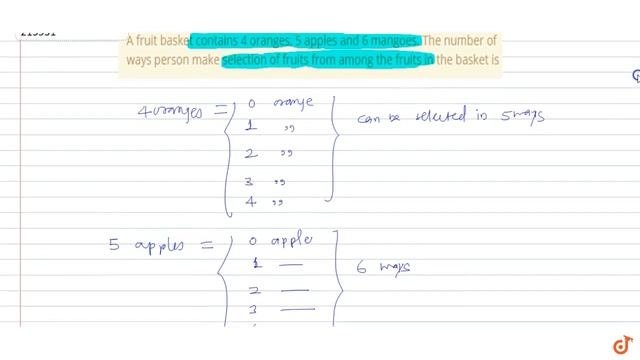 A fruit basket contains 4 oranges, 5 apples and 6 mangoes. The number of
ways person make selection of fruits from among the fruits in the basket is
4 oranges = 0 orange can be selected in 5 ways
1 ,,
2 ,,
3 ,,
4 ,,
5 apples = 0 apple 6 ways
1 —
2 —
3 —
doubtnut